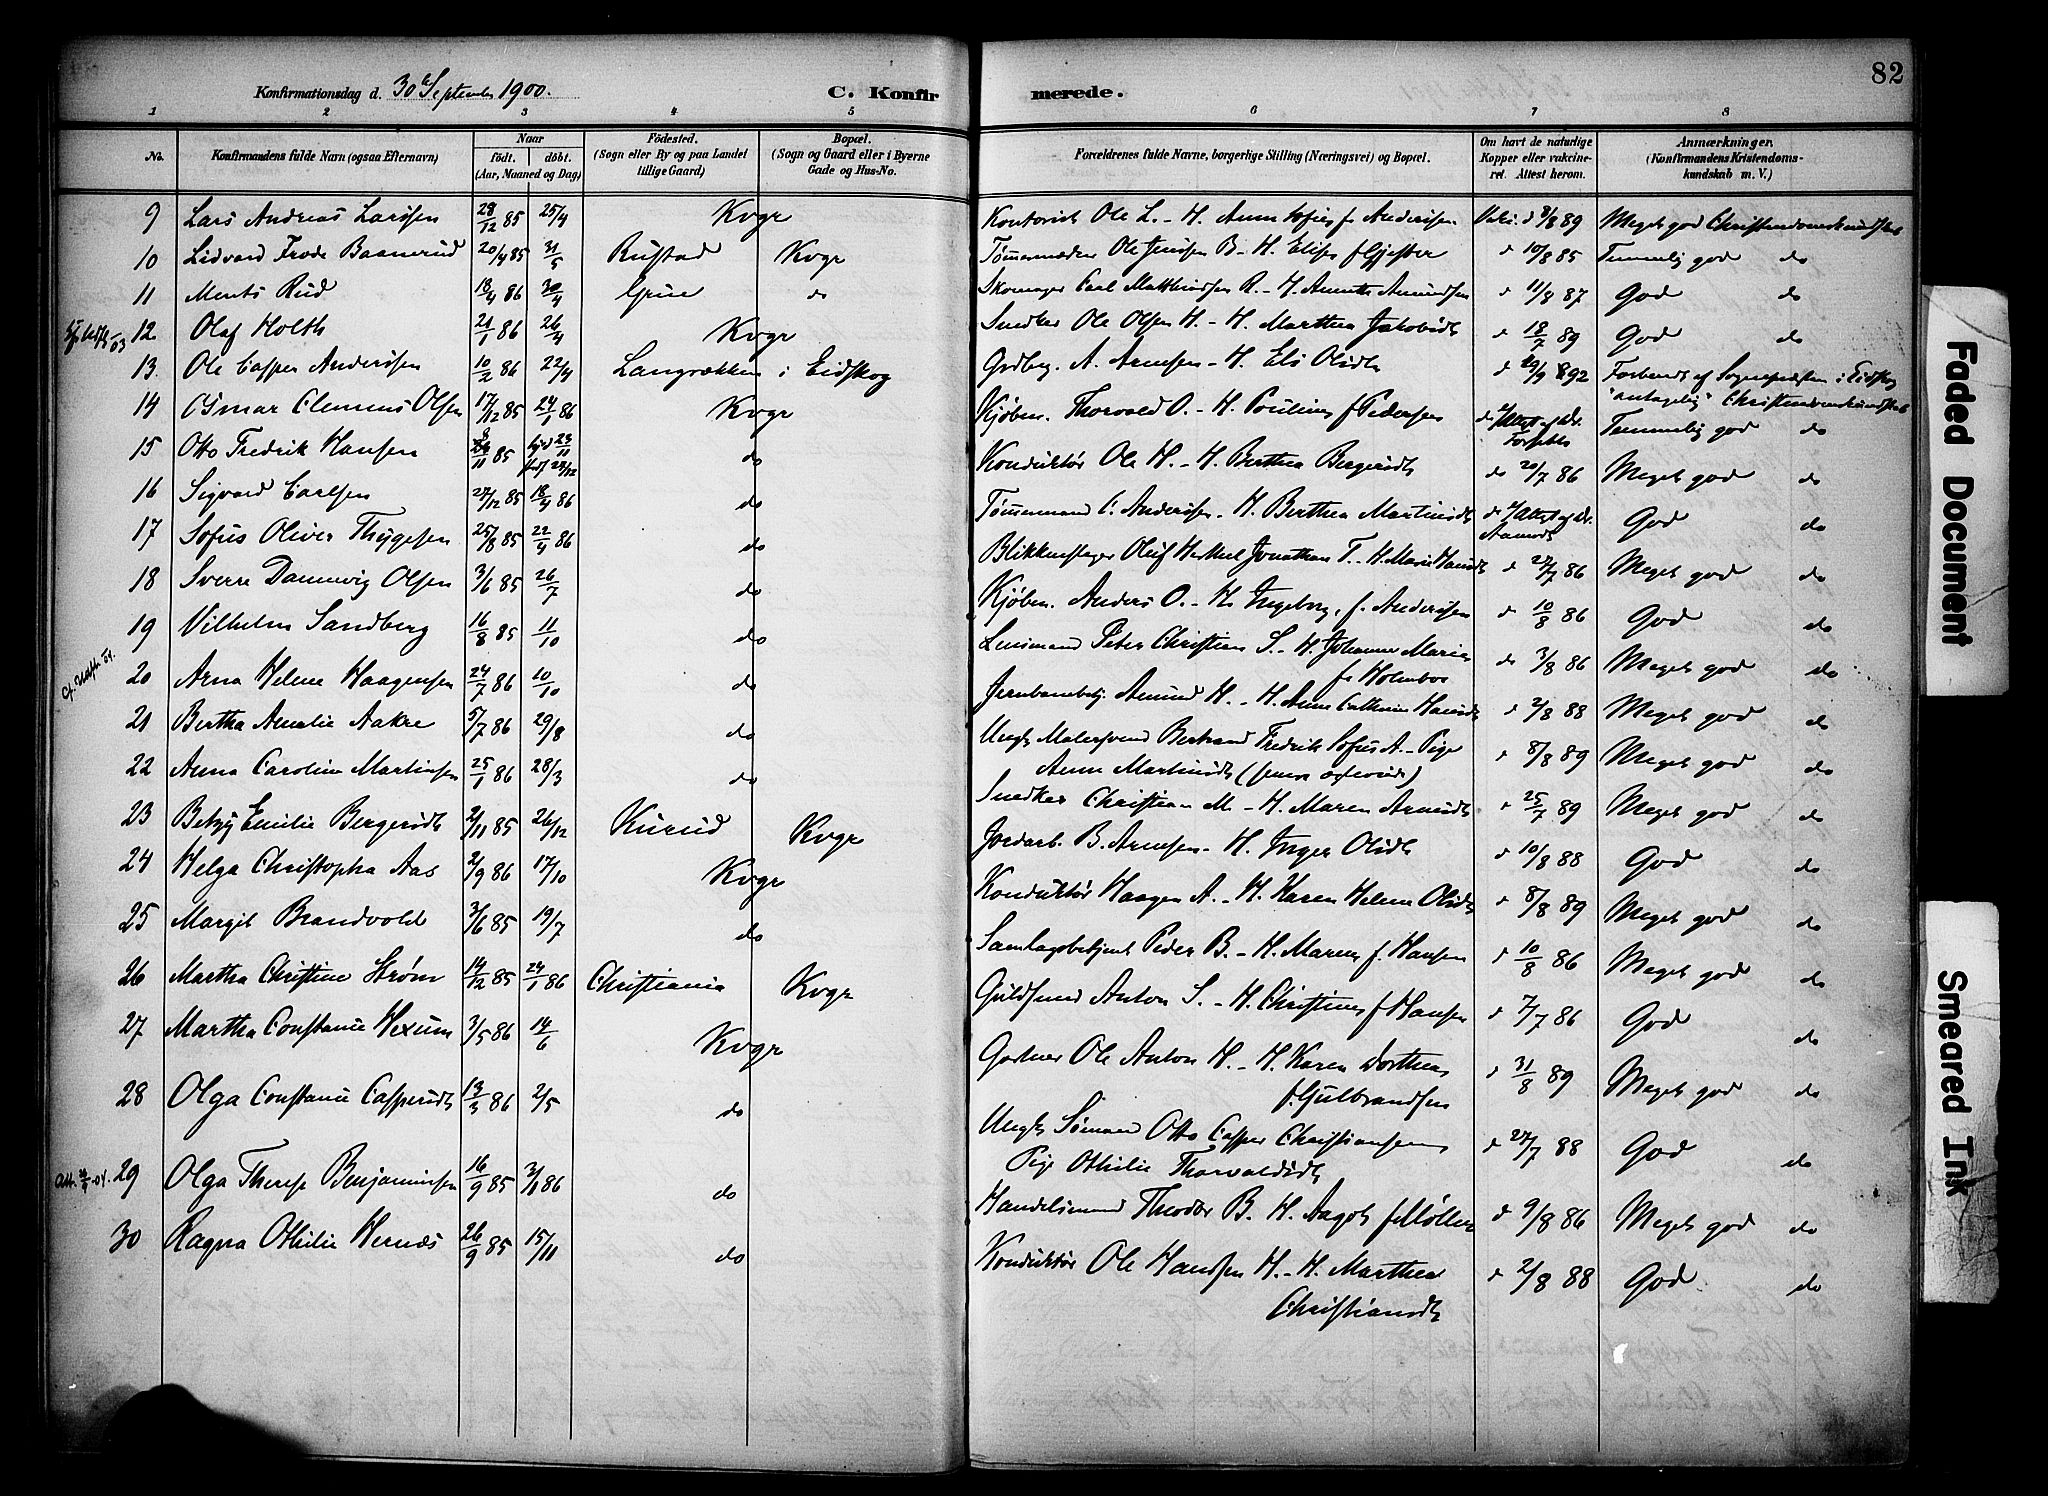 82
Konfirmationsdag d. 30te September 1900.
C. Konfirmerede.
1 2 3 4 5 6 7 8
No. Konfirmandens fulde Navn (ogsaa Efternavn) Naar født. døbt. (Aar, Maaned og Dag) Fødested. (Sogn eller By og paa Landet tillige Gaard) Bopæl. (Sogn og Gaard eller i Byerne Gade og Hus-No. Forældrenes fulde Navne, borgerlige Stilling (Næringsvei) og Bopæl. Om havt de naturlige Kopper eller vakcineret. Attest herom. Anmærkninger. (Konfirmandens Kristendomskundskab m. V.)
9 Lars Andreas Larssen 28/12 85 25/4 Kvgr Kontorist Ole L. - H. Anne Sofie f. Anderssen Vakc. d 3/8 89 Meget god Christendomskundskab
10 Lidvard Frode Baanerud 20/4 85 31/5 Rustad Kvgr Tømmermand Ole Jenssen B - H. Elise f Gjester d 10/8 85 Temmelig god do
11 Ments Rud 18/4 86 30/4 Grue do Skomager Carl Matthiudsen R. - H. Annette Amundsen d 11/8 87 God do
12 Olaf Holth 21/1 86 26/4 Kvgr Snedker Ole Olsen H. - H. Marthea Jakobsdt d 18/7 89 God do
13. Ole Casper Anderssen 10/2 86 22/4 Langrækken i Eidskog Grdbrg. A. Arnesen - H. Else Olsdt. d 29/9 892 Forberedt af Sognepresten i Eidskog "antagelig" Christendomskundskab
14 Osmar Clemens Olsen 17/12 85 24/1 86 Kvgr Kjøbm. Thorvald O. - H. Pouline f Pedersen d. Attest af Dr. Forseths Temmelig god do
15 Otto Fredrik Hansen 8/11 85 hjd 23/11 stadf 28/12 do Konduktør Ole H. - H. Berthea Bergersdt do 20/7 86 Meget god do
16 Sigvard Carlsen 27/12 85 18/4 86 do Tømmermand C. Anderssen - H. Berthea Martinsdt d. Attest af Dr. Aamodt God do
17 Sofus Oliver Thygesen 25/8 85 22/4 86 do Blikkenslager Oluf Jonathan T. - H. Marie Hansdt d 27/7 86 Meget god do
18 Sverre Dannevig Olsen 3/6 85 26/7 do Kjøbm. Anders O. - H. Ingeborg f. Anderssen d 10/8 86 God do
19 Vilhelm Sandberg 16/8 85 11/10 do Lensmand Peter Christian S. - H. Johanne Marie f. Holmboe do 3/8 86 Meget god do
20 Arna Helene Haagensen 24/7 86 10/10 do Jernbanebetj. Amund H. - H. Anne Cathrine Hansdt d 2/8 88 Meget god do
21 Bertha Amalie Aakre 5/7 86 29/8 do Ungk. Malersvend Bertrand Fredrik Sofus A. - Pige Anne Martinsdt d 8/8 89 Meget god do
22 Anna Caroline Martinsen 25/1 86 28/3 do Snedker Christian M. - H. Maren Arnesdt d 25/7 89 Meget god do
23 Betzy Emilie Bergersdt 2/11 85 26/12 Kurud Kvgr Jordarb. B. Arnesen - H. Inger Olsdt d 10/8 88 God do
24 Helga Christopha Aas 2/9 86 17/10 Kvgr Konduktør Haagen A. - H. Karen Helene Olsdt d 8/8 89 Meget god do
25 Margit Brandvold 3/6 85 19/7 do Samlagsbetjent Peder B. - H. Maren f. Hansen d 10/8 86 Meget god do
26 Martha Christine Strøm 14/12 85 24/1 86 Christiania Kvgr Guldsmed Anton S. - H. Christine f Hansen d 7/7 86 God do
27 Martha Constance Hexum 3/5 86 14/6 Kvgr Gartner Ole Anton H. - H. Karen Dorthea f. Gulbrandsen d 31/8 89 Meget god do
28 Olga Constance Caspersdt 13/3 86 2/5 do Ungk. Sømand Otto Casper Christiansen Pige Othilie Thorvaldsdt d 27/7 88 God do
29 Olga Therese Benjaminsen 16/9 85 3/1 86 do Handelsmand Theodor B. H. Aagot f Møller d 9/8 86 Meget god do
30 Ragna Othilie Hernæs 26/9 85 15/11 do Konduktør Ole Hansen H. - H. Marthea Christiansdt d 2/8 88 God do
Faded Document
Smeared Ink